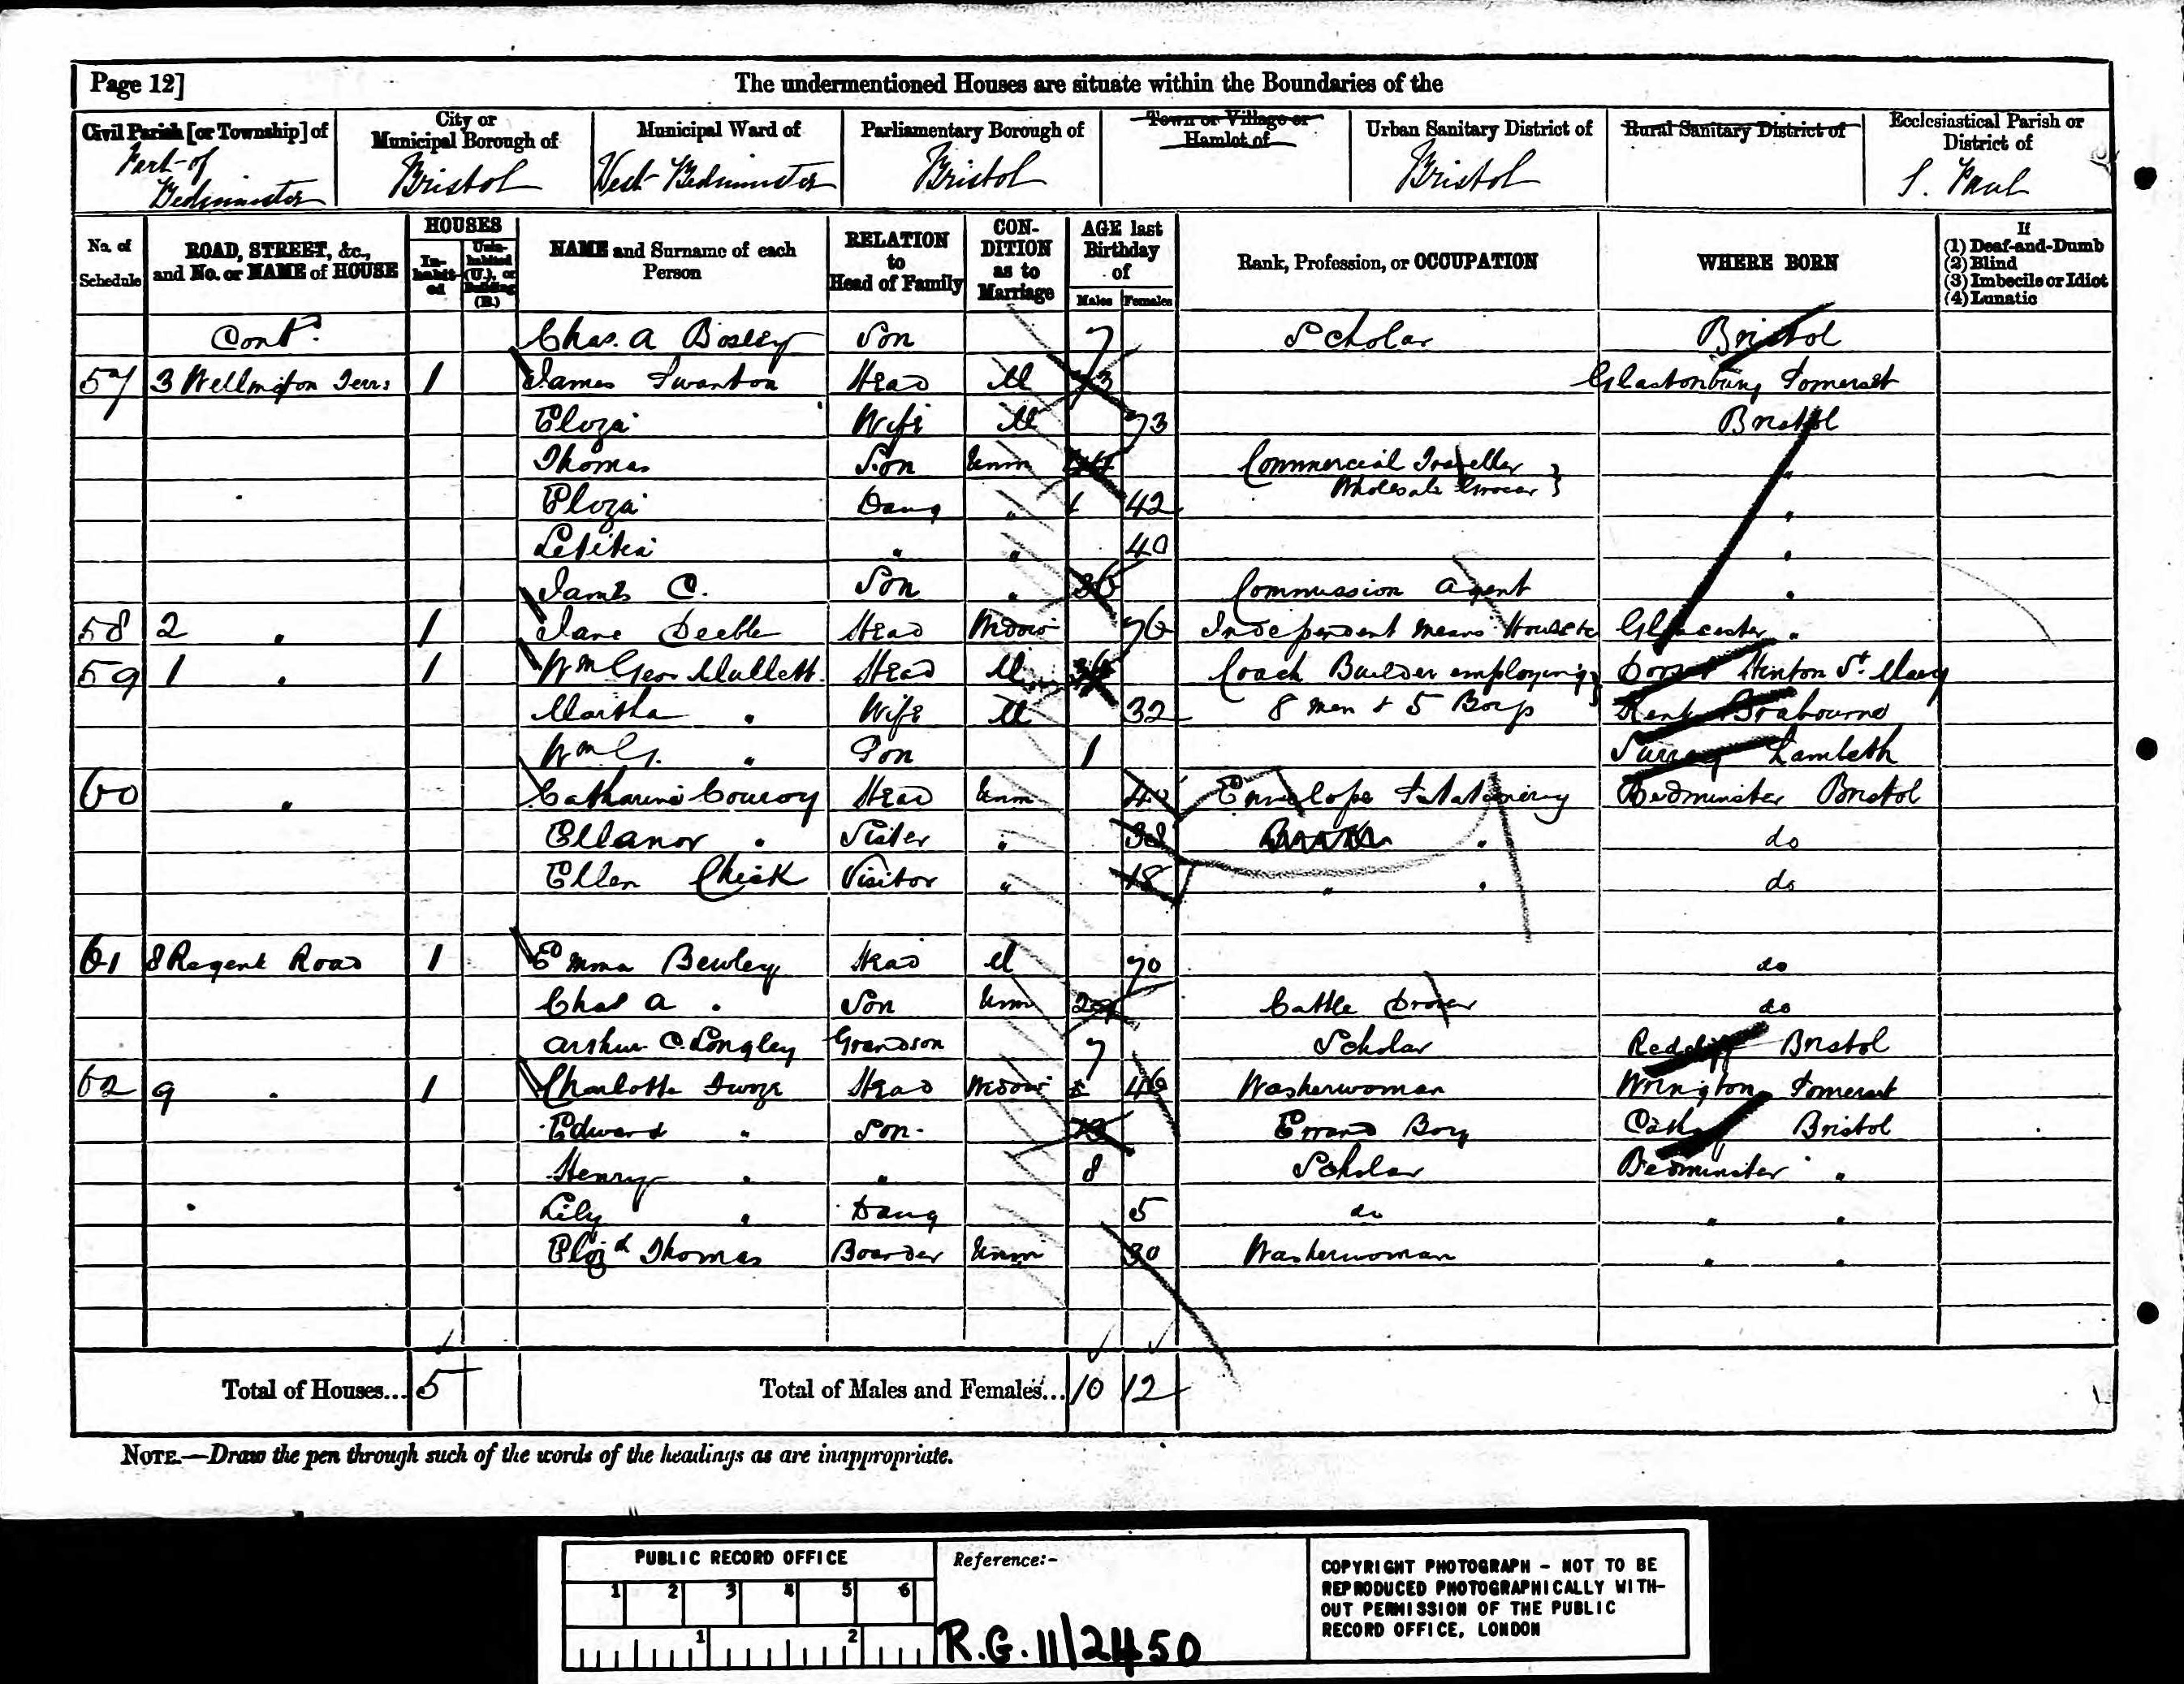 Page 12]
The undermentioned Houses are situate within the Boundaries of the
Civil Parish [or Township] of
Part of
Bedminster
City or
Municipal Borough of
Bristol
Municipal Ward of
West Bedminster
Parliamentary Borough of
Bristol
Town or Village or
Hamlet of
Urban Sanitary District of
Bristol
Rural Sanitary District of
Ecclesiastical Parish or
District of
S. Paul
No. of Schedule
ROAD, STREET, &c., and No. or NAME of HOUSE
HOUSES
In-habit-ed
Unin-habited (U.), or Building (B.)
NAME and Surname of each Person
RELATION to Head of Family
CON-DITION as to Marriage
AGE last Birthday of
Males Females
Rank, Profession, or OCCUPATION
WHERE BORN
If
(1) Deaf-and-Dumb
(2) Blind
(3) Imbecile or Idiot
(4) Lunatic
Cont^d. Chas. A Bosley Son 7 Scholar Bristol
57 3 Wellington Terr: 1 James Swanton Head M 73 Glastonbury Somerset
Eliza Wife M 73 Bristol
Thomas Son Unm Commercial Traveller "
Wholesale Grocer }
Eliza Daug " 42 "
Letitia " " 40 "
James C. Son " 36 Commission Agent "
58 2 " 1 Jane Deeble Head Widow 76 Independent Means Gloucester "
59 1 " 1 Wm Geo Mullett Head M Coach Builder employing } Dorset Hinton St. Mary
Martha " Wife M 32 8 Men & 5 Boys Kent Brabourne
Wm G. " Son 1 Surrey Lambeth
60 " Catharine Conroy Head Unm Envelope Stationery Bedminster Bristol
Ellanor " Sister " 38 " do
Ellen Chick Visitor " 18 " " do
61 8 Regent Road 1 Emma Bewley Head M 70 do
Chas A " Son Unm Cattle Drover do
Arthur C. Longley Grandson 7 Scholar Redcliff Bristol
62 9 " 1 Charlotte Head Widow 46 Washerwoman Wrington Somerset
Edward " Son 13 Errand Boy Bristol
Henry " " 8 Scholar Bedminster "
Lily " Daug 5 do " "
Eliz^h Thomas Boarder Unm 30 Washerwoman " "
Total of Houses... 5
Total of Males and Females... 10 12
NOTE.—Draw the pen through such of the words of the headings as are inappropriate.
PUBLIC RECORD OFFICE
1 2 3 4 5 6
1 2
Reference:-
R.G. 11/2450
COPYRIGHT PHOTOGRAPH - NOT TO BE
REPRODUCED PHOTOGRAPHICALLY WITH-
OUT PERMISSION OF THE PUBLIC
RECORD OFFICE, LONDON